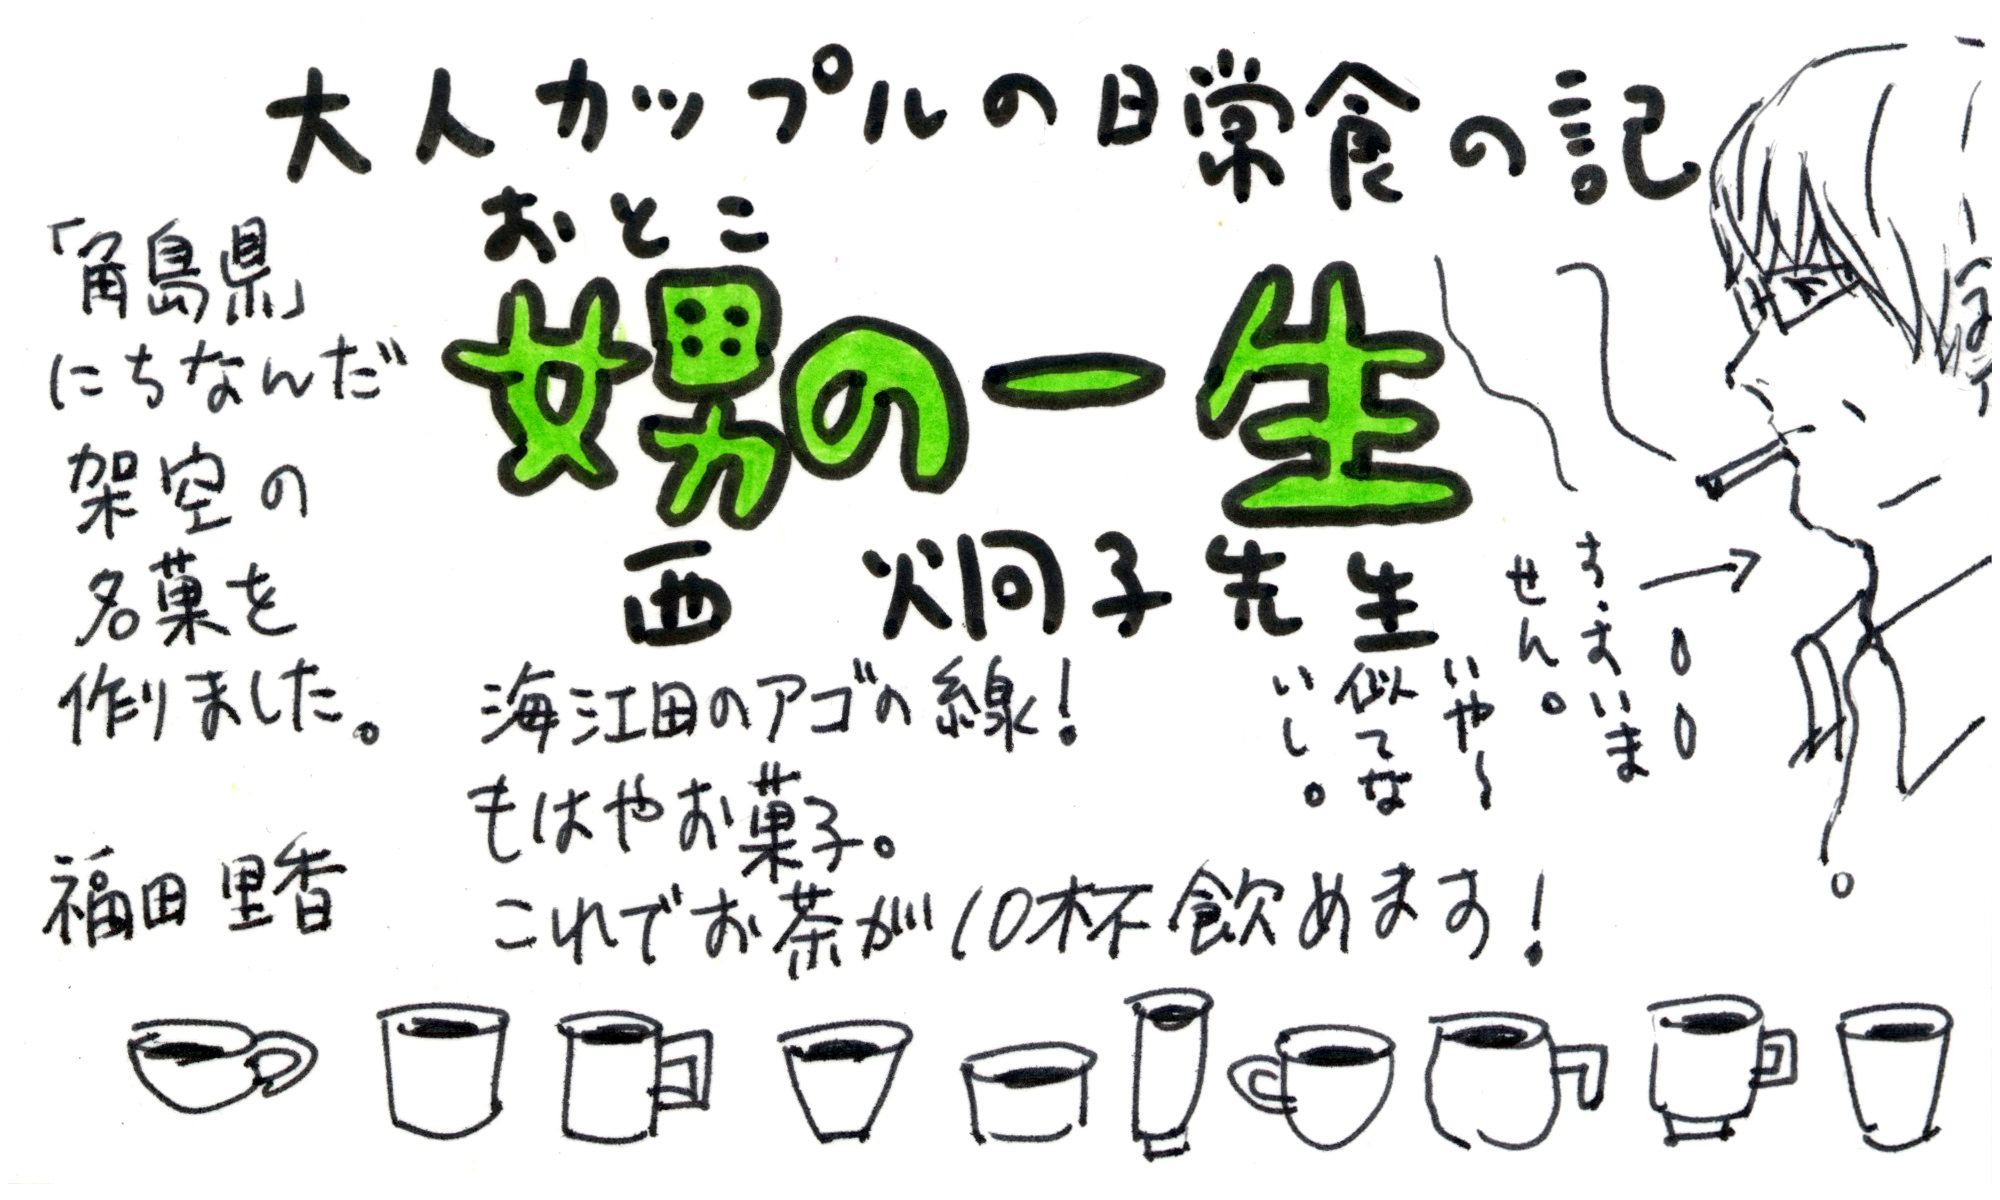 大人カップルの日常食の記
おとこ
娚の一生
西 炯子先生
「角島県」
にちなんだ
架空の
名菓を
作りました。
福田里香
海江田のアゴの線!
もはやお菓子。
これでお茶が10杯飲めます!
いや〜
似てな
いし。
す、すいま
せん。